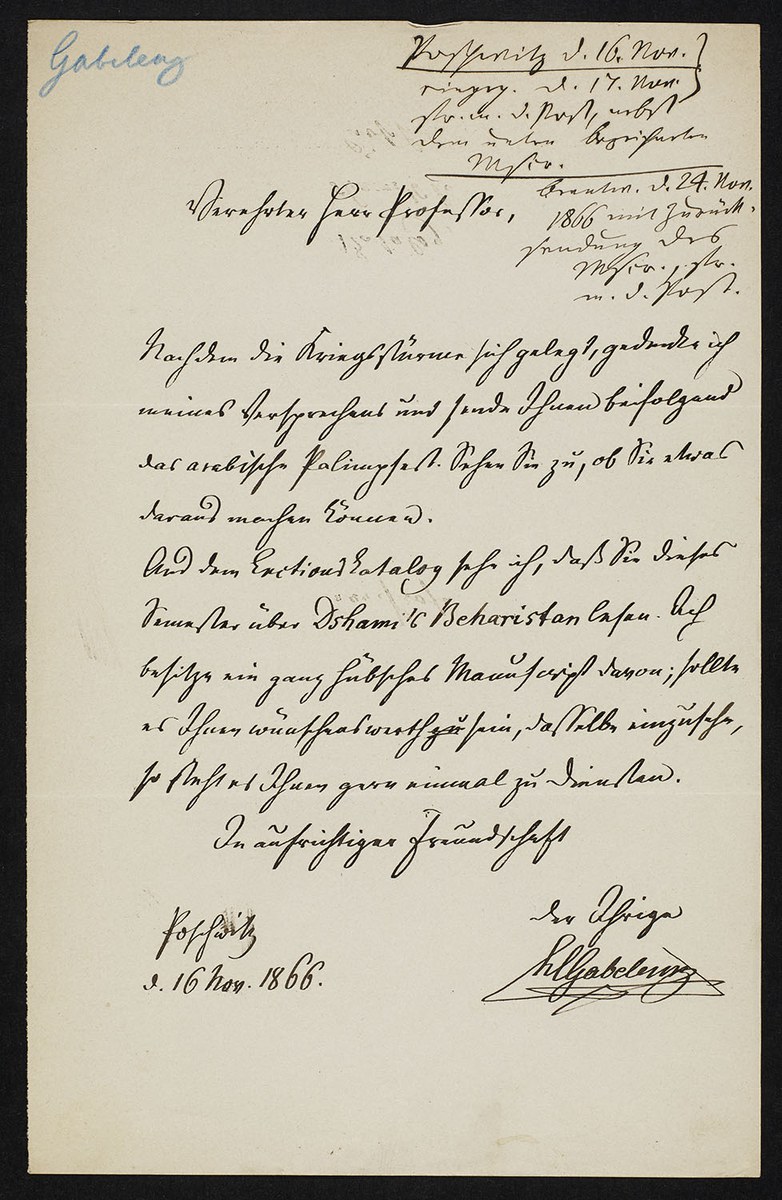 Gabelenz
Poschwitz d. 16. Nov.
eingeg. d. 17. Nov.
str. m. d. Post, nebst
dem unten bezeichneten
Mscr.
beantw. d. 24. Nov.
1866 mit Zurück-
sendung des
Mscr., str.
m. d. Post.
Verehrter Herr Professor,
Nachdem die Kriegsstürme sich gelegt, gedenke ich
meines Versprechens und sende Ihnen beifolgend
das arabische Palimpsest. Sehen Sie zu, ob Sie etwas
daraus machen können.
Aus dem Lectionskatalog sehe ich, daß Sie dieses
Semester über Dshami's Beharistan lesen. Ich
besitze ein ganz hübsches Manuscript davon; sollte
es Ihnen wünschenswerth zu sein, dasselbe einzusehn,
so steht es Ihnen gern einmal zu Diensten.
In aufrichtiger Freundschaft
der Ihrige
HCGabelentz
Poschwitz
d. 16 Nov. 1866.